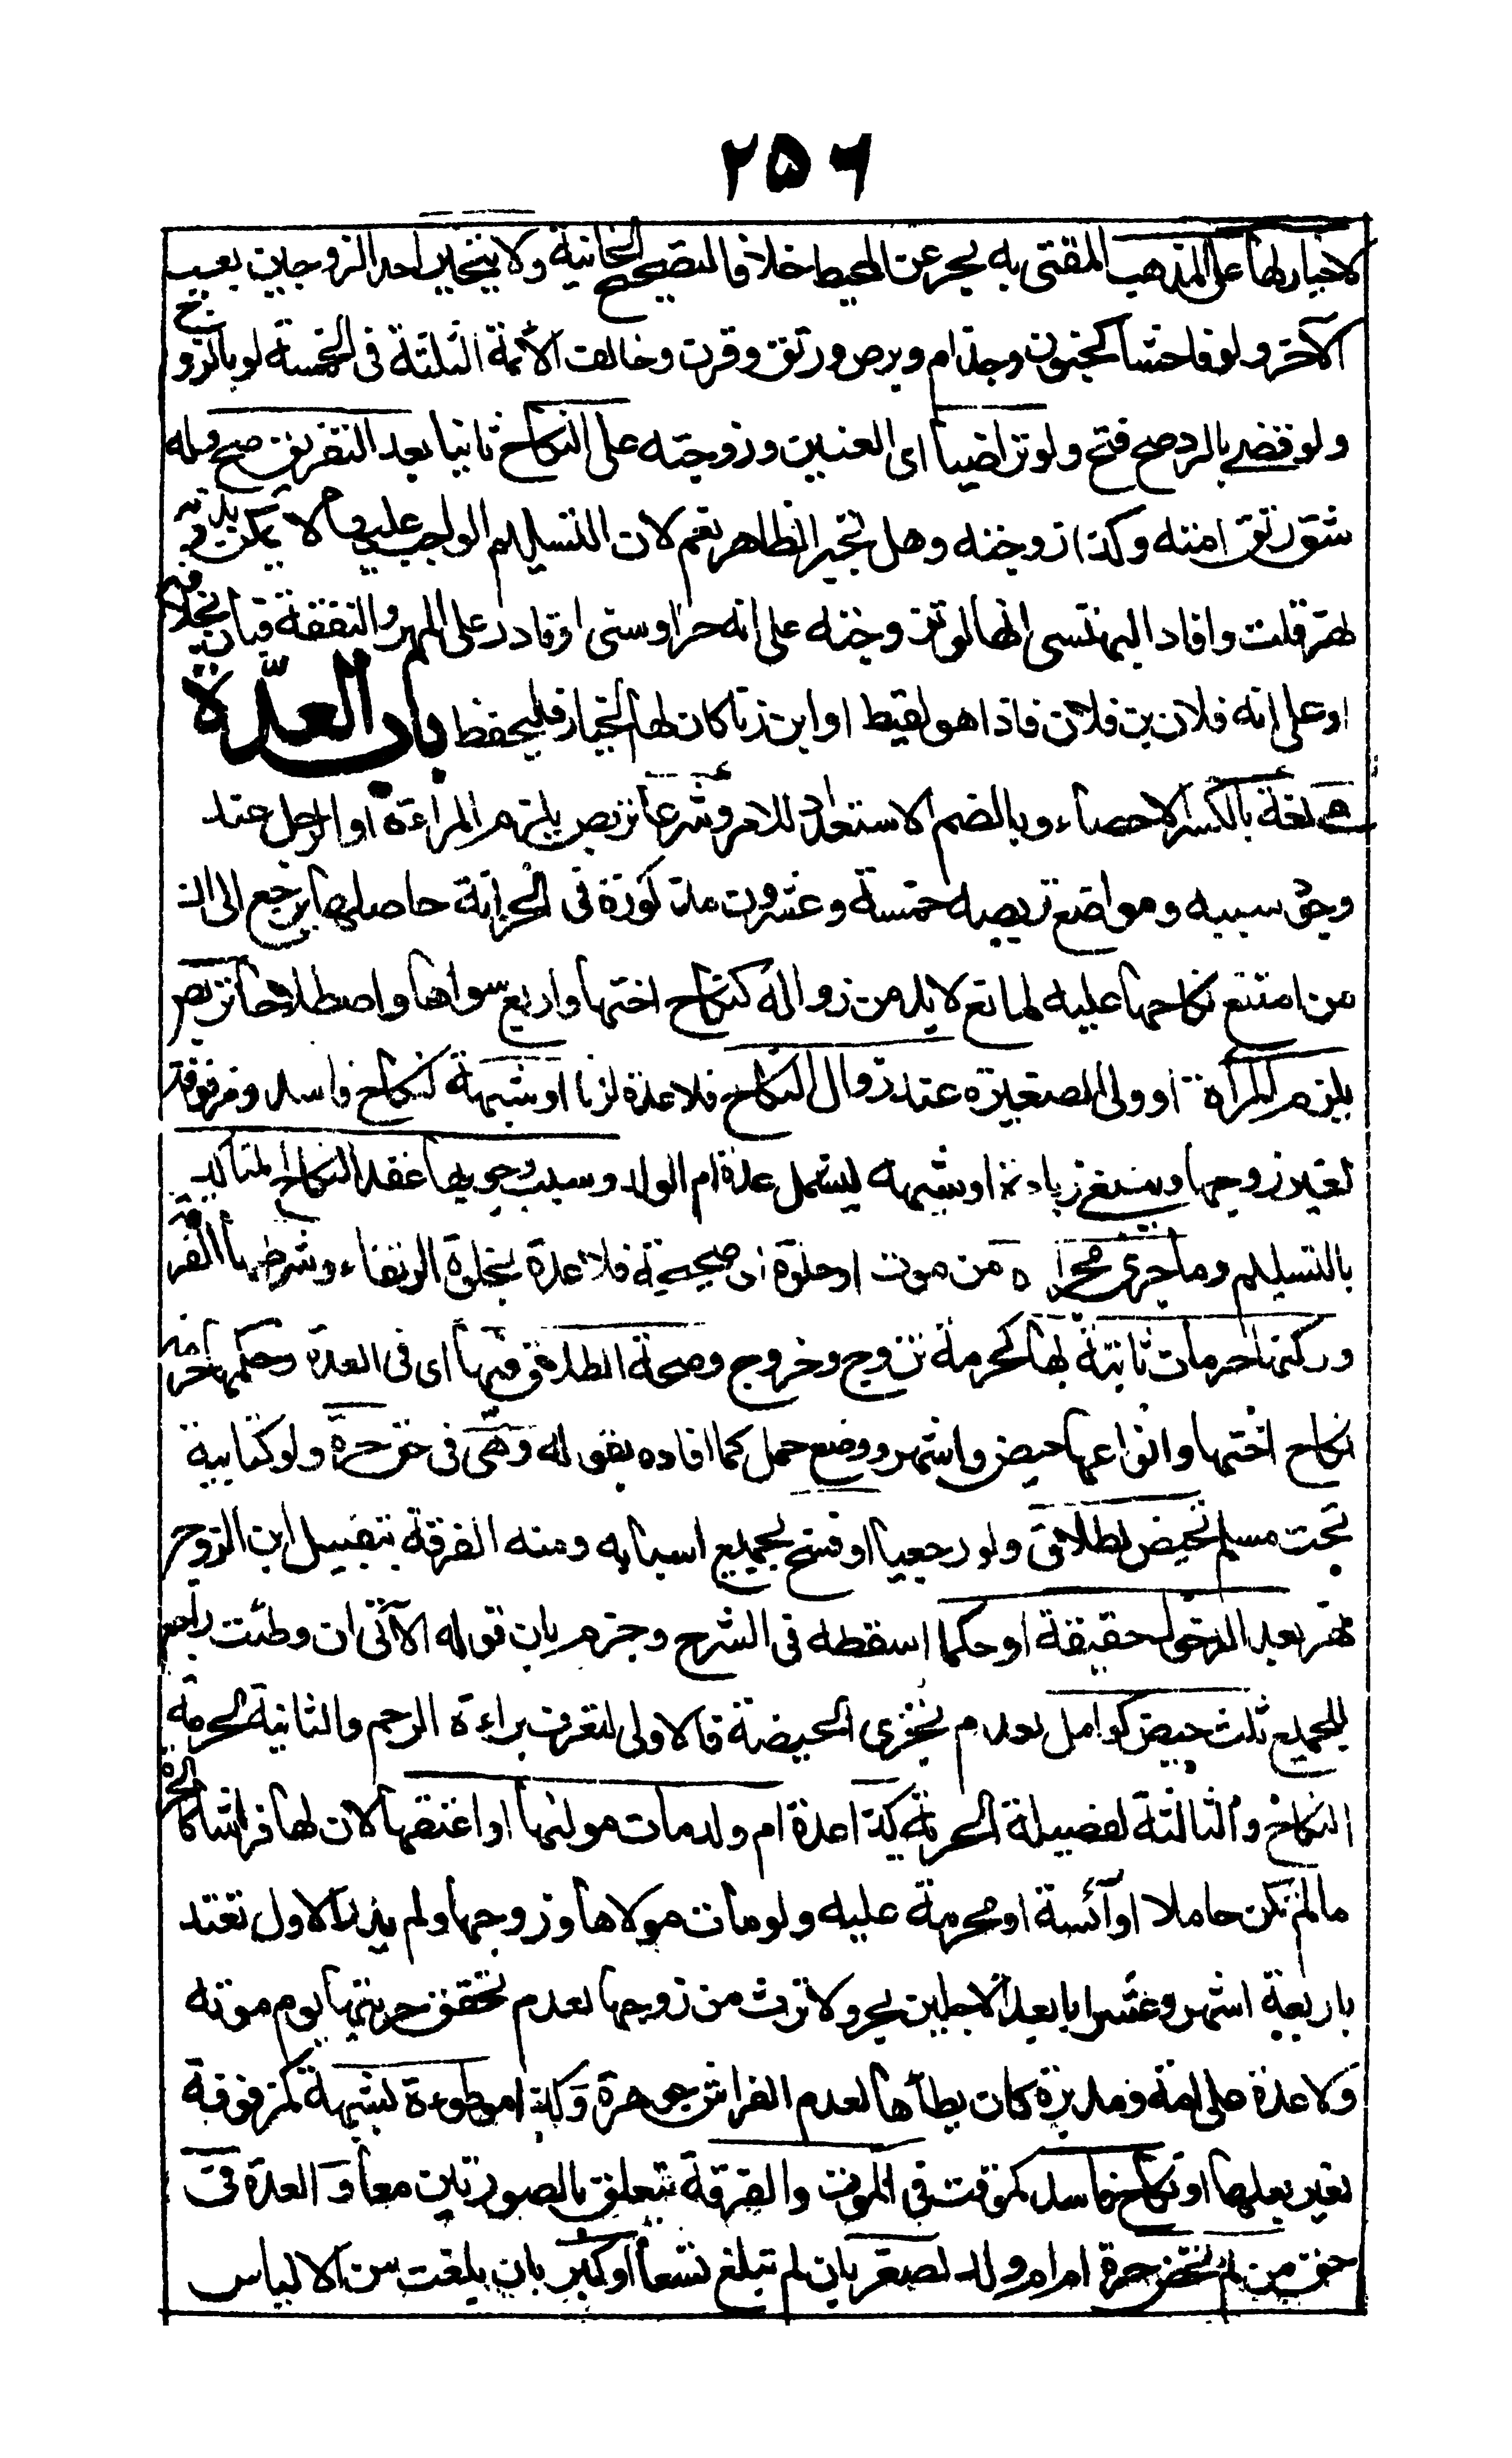 ٢٥٦
لا خيار لها على المذهب المفتى به بحر عن المحيط خلافا لتصحيح الخانية ولا يتخير احد الزوجين بعيب
الآخر ولو فاحشا كجنون وجذام وبرص ورتق وقرن وخالف الأئمة الثلثة فى الخمسة لو بالزوج
ولو قضى بالرد صح فتح ولو تراضيا اى العنين وزوجته على النكاح ثانيا بعد التفريق صح وله
شق رتق امته وكذا زوجته وهل تجبر الظاهر نعم لان التسليم الواجب عليها لا يمكن بدونه
نهر قلت وافاد البهنسى انها لو تزوجته على انه حر او سنى او قادر على المهر والنفقة فبان بخلافه
او على انه فلان بن فلان فاذا هو لقيط او ابن زنا كان لها الخيار فليحفظ باب العدّة
هى لغة بالكسر الاحصاء وبالضم الاستعداد للامر وشرعا تربص يلزم المراءة او الرجل عند
وجود سببه ومواضع تربصه خمسة وعشرون مذكورة فى الخزانة حاصلها يرجع الى ان
من امتنع نكاحها عليه لمانع لابد من زواله كنكاح اختها واربع سواها واصطلاحا تربص
يلزم المرأة او ولى الصغيرة عند زوال النكاح فلا عدة لزنا او شبهة كنكاح فاسد ومزفوفة
لغير زوجها وينبغى زيادة او شبهه ليشمل عدة ام الولد وسبب وجوبها عقد النكاح المتأكد
بالتسليم وما جرى مجراه من موت او خلوة اى صحيحة فلا عدة بخلوة الرتقاء وشرطها الفرقة
وركنها حرمات ثابتة بها كحرمة تزوج وخروج وصحة الطلاق فيها اى فى العدة وحكمها حرمة
نكاح اختها وانواعها حيض واشهر ووضع حمل كما افاده بقوله وهى فى حق حرة ولو كتابية
تحت مسلم تحيض لطلاق ولو رجعيا او فسخ بجميع اسبابه ومنه الفرقة بتقبيل ابن الزوج
نهر بعد الدخول حقيقة او حكما اسقطه فى الشرح وجزم بان قوله الآتى ان وطئت راجع
للجميع ثلث حيض كوامل لعدم تجزى الحيضة فالاولى لتعرف براءة الرحم والثانية لحرمة
النكاح والثالثة لفضيلة الحرية كذا عدة ام ولد مات مولاها او اعتقها لان لها فراشا كالحرة
مالم تكن حاملا او آئسة او محرمة عليه ولو مات مولاها وزوجها ولم يدر الاول تعتد
باربعة اشهر وعشرا بابعد الاجلين بحر ولا ترث من زوجها لعدم تحقق حريتها يوم موته
ولا عدة على امة ومدبرة كان يطأها لعدم الفراش جوهرة وكذا موطوءة بشبهة كمزفوفة
بغير بعلها او نكاح فاسد كموقت فى الموت والفرقة يتعلق بالصورتين معا والعدة فى
حق من لم تحض حرة ام ام ولد لصغر بان لم تبلغ تسعا او كبر بان بلغت سن الاياس